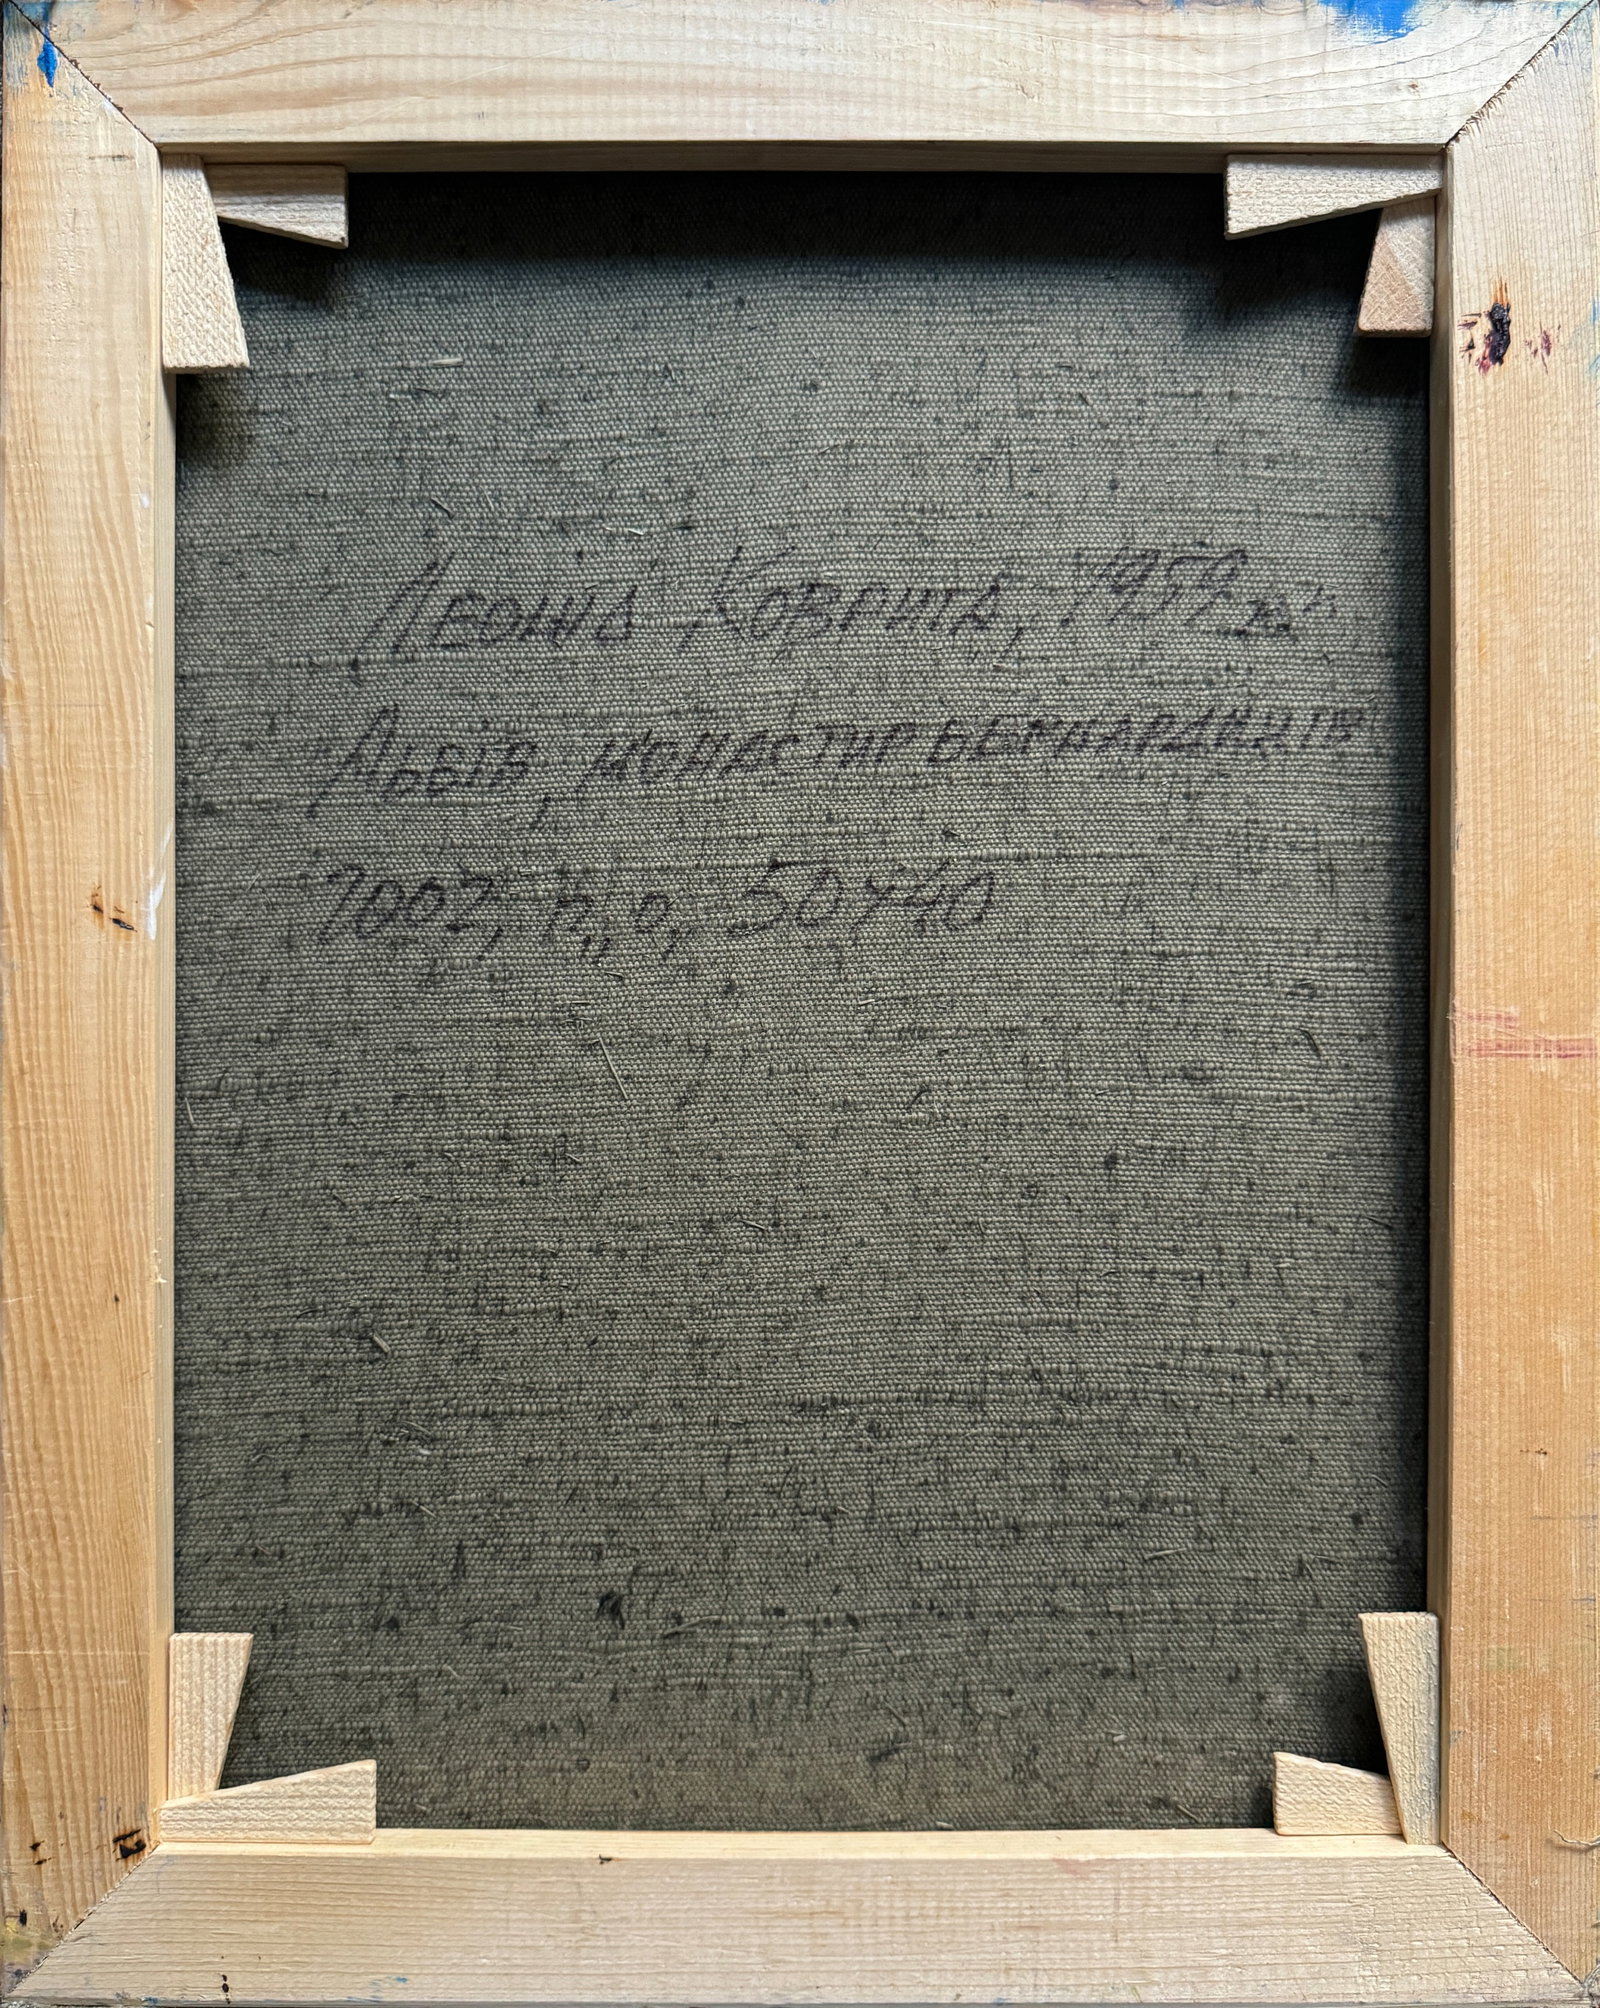 Леонід Коврига, 1959
Львів, монастир бернардинців
2002, п, о, 50х40